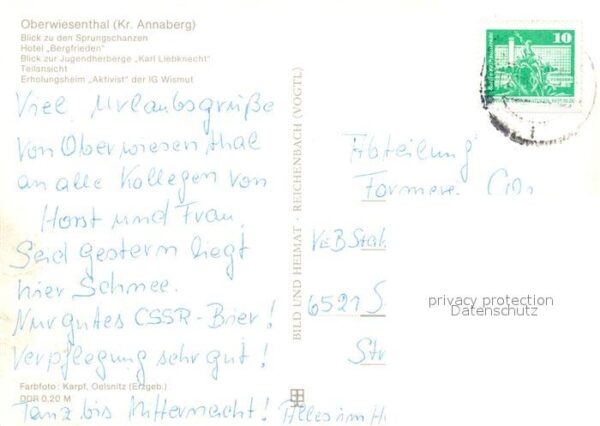 Oberwiesenthal (Kr. Annaberg)
Blick zu den Sprungschanzen
Hotel „Bergfrieden"
Blick zur Jugendherberge „Karl Liebknecht"
Teilansicht
Erholungsheim „Aktivist" der IG Wismut
Viel Urlaubsgrüße
von Oberwiesenthal
an alle Kollegen von
Horst und Frau.
Seid gestern liegt
hier Schnee.
Nur gutes CSSR-Bier!
Verpflegung sehr gut!
Farbfoto: Karpf, Oelsnitz (Erzgeb.)
DDR 0,20 M
Tanz bis Mitternacht! Alles im H
BILD UND HEIMAT · REICHENBACH (VOGTL)
10
Abteilung
Formerei
VEB Stah
6521 S
Str
privacy protection
Datenschutz